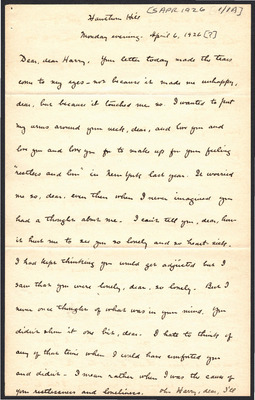 [5 APR 1926 1/1A]
Hawthorn Hill
Monday evening. April 6, 1926 [?]
Dear, dear Harry, Your letter today made the tears
come to my eyes - not because it made me unhappy,
dear, but because it touched me so. I wanted to put
my arms around your neck, dear, and love you and
love you and love you for to make up for your feeling
"restless and low" in last year. It worried
me so, dear, even then when I never imagined you
had a thought about me. I can't tell you, dear, how
it hurt me to see you so lonely and so heart sick.
I had kept thinking you would get adjusted but I
saw that you were lonely, dear, so lonely. But I
never once thought of what was in your mind. You
didn't show it one bit, dear. I hate to think of
any of that time when I could have comforted you
and didn't - I mean rather when I was the cause of
your restlessness and loneliness. Oh Harry, dear, I'll